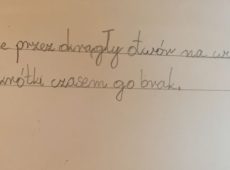 e przez okrągły otwór na
krótki czasem go brak.